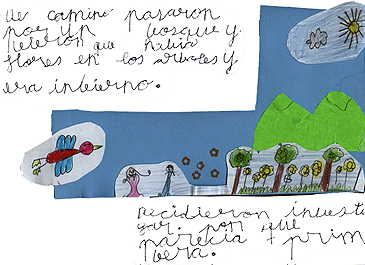 de camino pasaron
por un bosque y
vieron que había
flores en los arboles y
era inbierno.
Decidieron investi
gar. por que
parecia prim
bera.